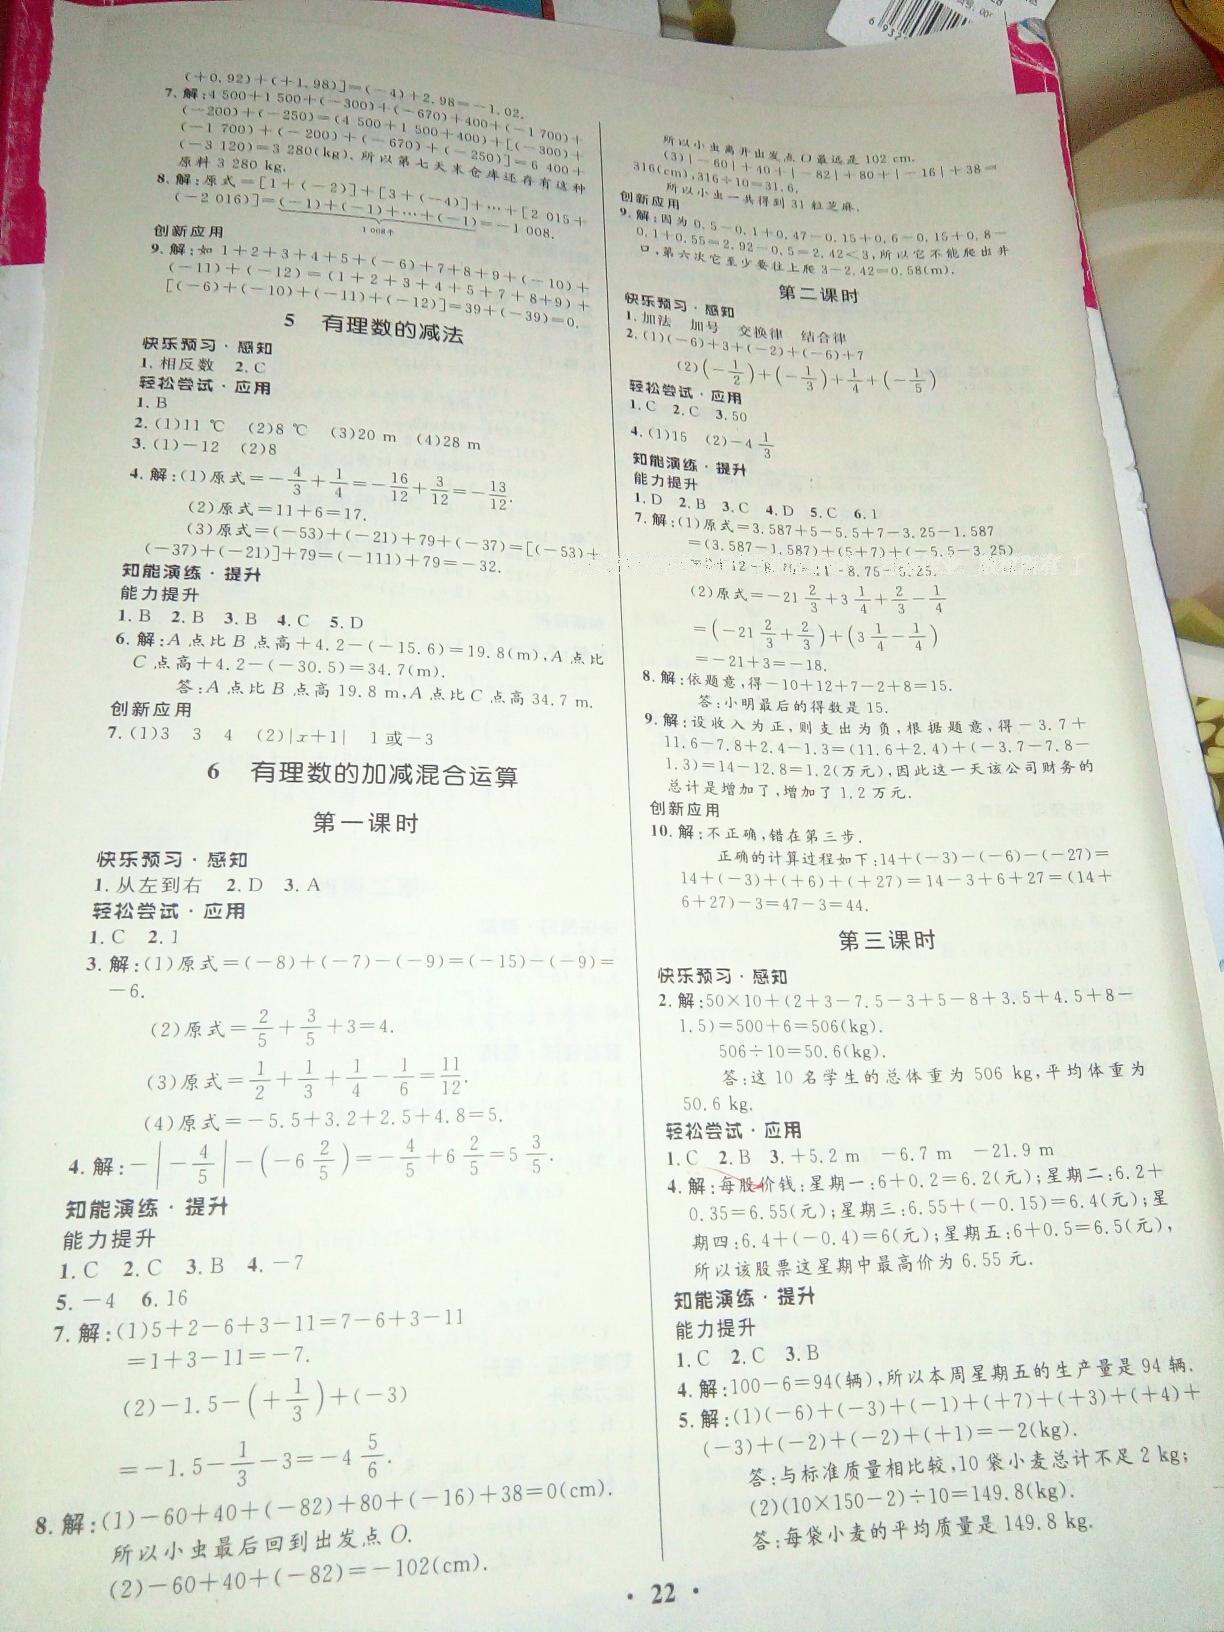 (+0.92)+(+1.98)]=(-4)+2.98=-1.02.
7.解:4 500+1 500+(-300)+(-670)+400+(-1 700)+
(-200)+(-250)=(4 500+1 500+400)+[(-300)+
(-1 700)+(-200)+(-670)+(-250)]=6 400+
(-3 120)=3 280(kg).所以第七天末仓库还存有这种
原料3 280 kg.
8.解:原式=[1+(-2)]+[3+(-4)]+…+[2 015+
(-2 016)]=(-1)+(-1)+…+(-1)=-1 008.
1 008个
创新应用
9.解:如1+2+3+4+5+(-6)+7+8+9+(-10)+
(-11)+(-12)=(1+2+3+4+5+7+8+9)+
[(-6)+(-10)+(-11)+(-12)]=39+(-39)=0.
5 有理数的减法
快乐预习·感知
1.相反数 2.C
轻松尝试·应用
1.B
2.(1)11 ℃ (2)8 ℃ (3)20 m (4)28 m
3.(1)-12 (2)8
4.解:(1)原式=-4/3+1/4=-16/12+3/12=-13/12.
(2)原式=11+6=17.
(3)原式=(-53)+(-21)+79+(-37)=[(-53)+
(-37)+(-21)]+79=(-111)+79=-32.
知能演练·提升
能力提升
1.B 2.B 3.B 4.C 5.D
6.解:A点比B点高+4.2-(-15.6)=19.8(m),A点比
C点高+4.2-(-30.5)=34.7(m).
答:A点比B点高19.8 m,A点比C点高34.7 m.
创新应用
7.(1)3 3 4 (2)|x+1| 1或-3
6 有理数的加减混合运算
第一课时
快乐预习·感知
1.从左到右 2.D 3.A
轻松尝试·应用
1.C 2.1
3.解:(1)原式=(-8)+(-7)-(-9)=(-15)-(-9)=
-6.
(2)原式=2/5+3/5+3=4.
(3)原式=1/2+1/3+1/4-1/6=11/12.
(4)原式=-5.5+3.2+2.5+4.8=5.
4.解:-|-4/5|-(-6 2/5)=-4/5+6 2/5=5 3/5.
知能演练·提升
能力提升
1.C 2.C 3.B 4.-7
5.-4 6.16
7.解:(1)5+2-6+3-11=7-6+3-11
=1+3-11=-7.
(2)-1.5-(+1/3)+(-3)
=-1.5-1/3-3=-4 5/6.
8.解:(1)-60+40+(-82)+80+(-16)+38=0(cm).
所以小虫最后回到出发点O.
(2)-60+40+(-82)=-102(cm).
所以小虫离开出发点O最远是102 cm.
(3)|-60|+40+|-82|+80+|-16|+38=
316(cm),316÷10=31.6.
所以小虫一共得到31粒芝麻.
创新应用
9.解:因为0.5-0.1+0.47-0.15+0.6-0.15+0.8-
0.1+0.55=2.92-0.5=2.42<3,所以它不能爬出井
口,第六次它至少要往上爬3-2.42=0.58(m).
第二课时
快乐预习·感知
1.加法 加号 交换律 结合律
2.(1)(-6)+3+(-2)+(-6)+7
(2)(-1/2)+(-1/3)+1/4+(-1/5)
轻松尝试·应用
1.C 2.C 3.50
4.(1)15 (2)-4 1/3
知能演练·提升
能力提升
1.D 2.B 3.C 4.D 5.C 6.1
7.解:(1)原式=3.587+5-5.5+7-3.25-1.587
=(3.587-1.587)+(5+7)+(-5.5-3.25)
(2)原式=-21 2/3+3 1/4+2/3-1/4
=(-21 2/3+2/3)+(3 1/4-1/4)
=-21+3=-18.
8.解:依题意,得-10+12+7-2+8=15.
答:小明最后的得数是15.
9.解:设收入为正,则支出为负,根据题意,得-3.7+
11.6-7.8+2.4-1.3=(11.6+2.4)+(-3.7-7.8-
1.3)=14-12.8=1.2(万元),因此这一天该公司财务的
总计是增加了,增加了1.2万元.
创新应用
10.解:不正确,错在第三步.
正确的计算过程如下:14+(-3)-(-6)-(-27)=
14+(-3)+(+6)+(+27)=14-3+6+27=(14+
6+27)-3=47-3=44.
第三课时
快乐预习·感知
2.解:50×10+(2+3-7.5-3+5-8+3.5+4.5+8-
1.5)=500+6=506(kg).
506÷10=50.6(kg).
答:这10名学生的总体重为506 kg,平均体重为
50.6 kg.
轻松尝试·应用
1.C 2.B 3.+5.2 m -6.7 m -21.9 m
4.解:每股价钱:星期一:6+0.2=6.2(元);星期二:6.2+
0.35=6.55(元);星期三:6.55+(-0.15)=6.4(元);星
期四:6.4+(-0.4)=6(元);星期五:6+0.5=6.5(元),
所以该股票这星期中最高价为6.55元.
知能演练·提升
能力提升
1.C 2.C 3.B
4.解:100-6=94(辆),所以本周星期五的生产量是94辆.
5.解:(1)(-6)+(-3)+(-1)+(+7)+(+3)+(+4)+
(-3)+(-2)+(-2)+(+1)=-2(kg).
答:与标准质量相比较,10袋小麦总计不足2 kg;
(2)(10×150-2)÷10=149.8(kg).
答:每袋小麦的平均质量是149.8 kg.
· 22 ·